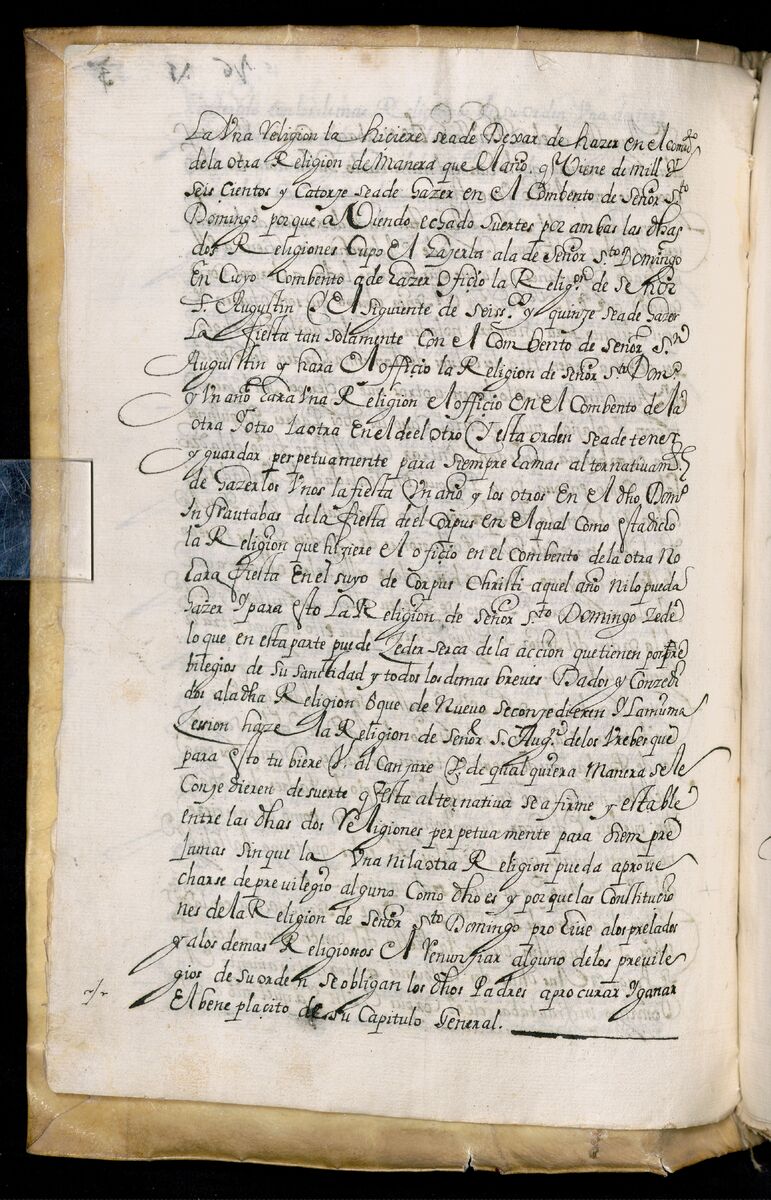 La Vna Religion la hiciere sea de Dexar de hazer en el combto
de la otra Religion de Manera que el año q Viene de mill y
seis cientos y Catorze sea de hazer en el Combento de señor sto
Domingo porque aViendo echado suertes por ambas las dhas
dos Religiones Cupo el hazerla ala de señor sto Domingo
en Cuyo Combento a de hazer oficio la Religon de señor
S. Augustin y el siguiente de seiss.os y quinze sea de hazer
La fiesta tan solamente con el Combento de señor s.n
Augusttin y hara el officio la Religion de señor sto Domo
y Vn año hara Vna Religion el officio en el Combento de la
otra y otro la otra en el de el otro y esta orden sea de tener
y guardar perpetuamente para siempre Jamas alternativamte
de hazer los Vnos la fiesta Vn año y los otros en el dho Domo
Infraoctabas de la fiesta de el Corpus en el qual como esta dicho
la Religion que hiziere el oficio en el combento de la otra No
hara fiesta en el suyo de Corpus Christi aquel año ni lo pueda
hazer y para esto La Religion de señor sto Domingo zede
lo que en esta parte puede zeder serca de la accion que tienen por pre
bilegios de su sanctidad y todos los demas breves Dados y Conzedi
dos ala dha Religion o que de Nuevo se conzedieren y La misma
Zession haze la Religion de señor S. Augn de los Vrebes que
para esto tubiere y alcanzare y de qualquiera Manera se le
Conzedieren de suerte q esta alternativa sea firme y estable
entre las dhas dos Religiones perpetuamente para siempre
Jamas sin que la Vna ni la otra Religion pueda aprove
charse de previlegio alguno Como dho es y porque las Constitucio
nes de la Religion de señor sto Domingo prohiue alos prelados
y alos demas Religiossos el renunziar alguno de los previle
gios de su orden se obligan los dhos Padres a procurar y ganar
El beneplacito de su Capitulo General.